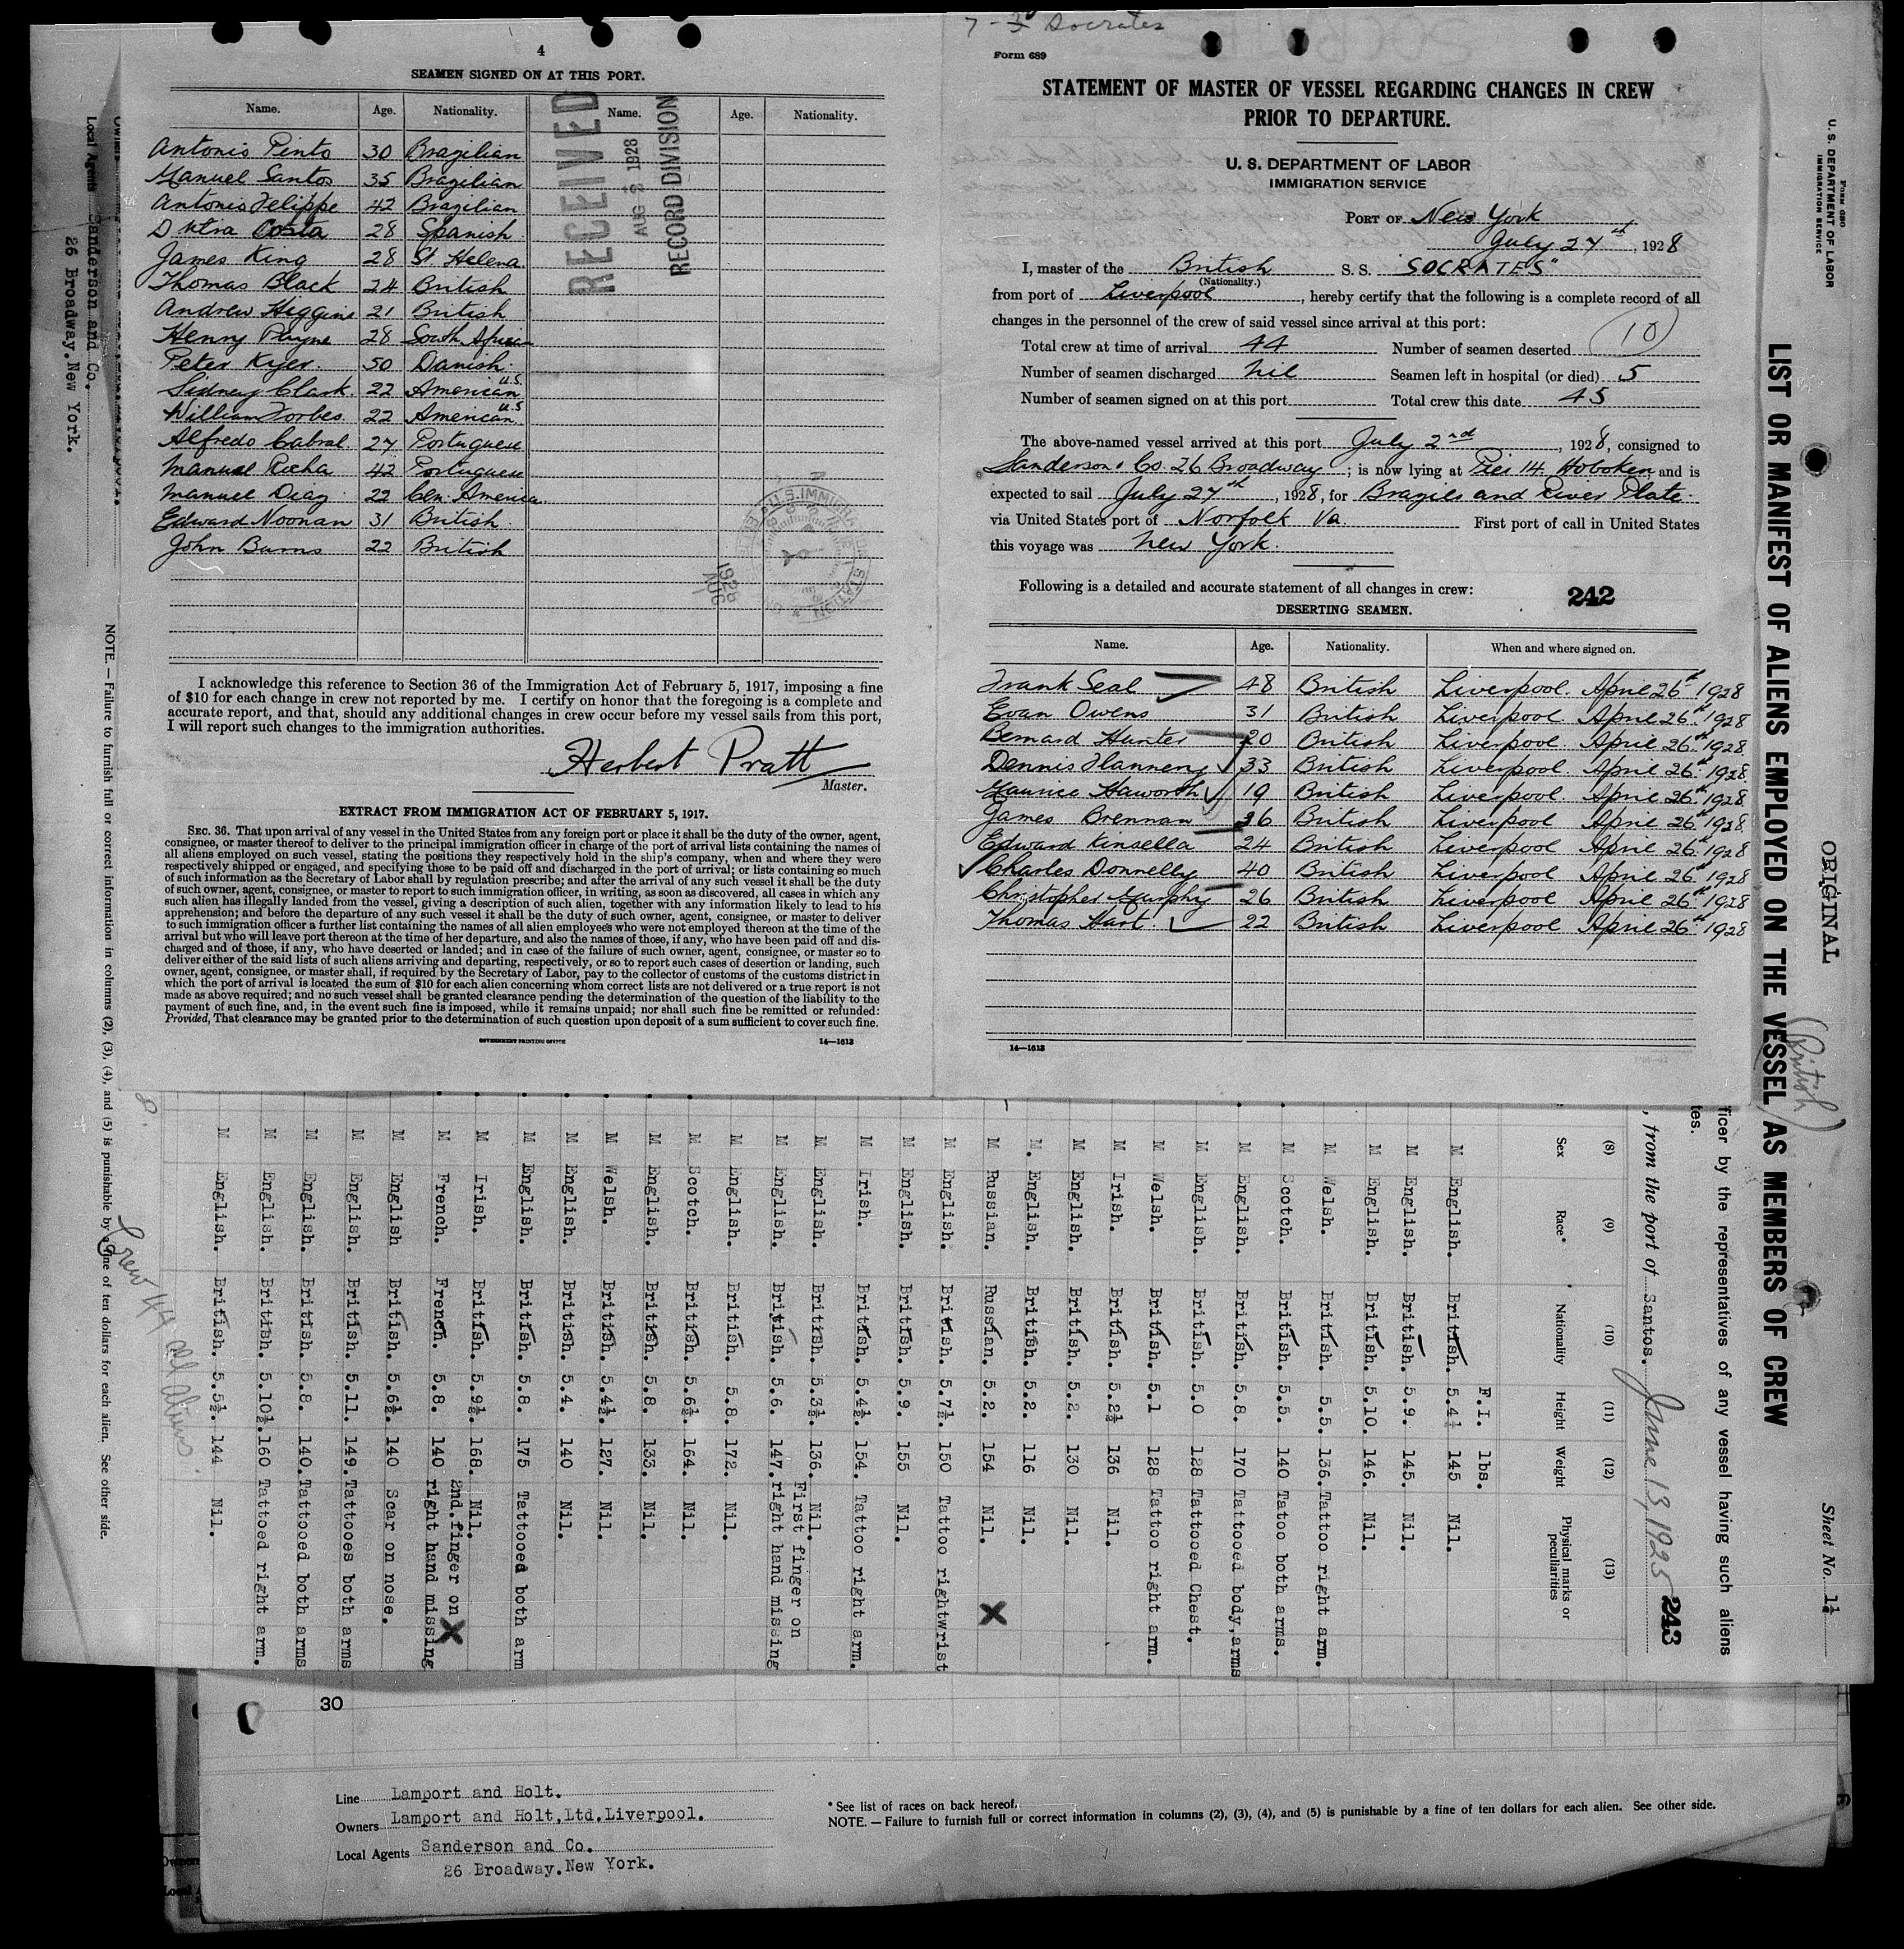 4
SEAMEN SIGNED ON AT THIS PORT.
Name. Age. Nationality. Name. Age. Nationality.
Antonio Pinto 30 Brazilian
Manuel Santos 35 Brazilian
Antonio Felippe 42 Brazilian
Dutra Costa 28 Spanish
James King 28 St Helena
Thomas Black 24 British
Andrew Higgins 21 British
Henry Payne 28 South African
Peter Kyer. 50 Danish.
Sidney Clark. 22 American U.S.
William Forbes. 22 American U.S
Alfredo Cabral 27 Portuguese
Manuel Rocha 42 Portuguese
Manuel Diaz 22 Cen. America.
Edward Noonan 31 British.
John Burns 22 British
RECEIVED
AUG 2 1928
RECORD DIVISION
1928
AUG
I acknowledge this reference to Section 36 of the Immigration Act of February 5, 1917, imposing a fine
of $10 for each change in crew not reported by me. I certify on honor that the foregoing is a complete and
accurate report, and that, should any additional changes in crew occur before my vessel sails from this port,
I will report such changes to the immigration authorities.
Herbert Pratt
Master.
EXTRACT FROM IMMIGRATION ACT OF FEBRUARY 5, 1917.
SEC. 36. That upon arrival of any vessel in the United States from any foreign port or place it shall be the duty of the owner, agent,
consignee, or master thereof to deliver to the principal immigration officer in charge of the port of arrival lists containing the names of
all aliens employed on such vessel, stating the positions they respectively hold in the ship's company, when and where they were
respectively shipped or engaged, and specifying those to be paid off and discharged in the port of arrival; or lists containing so much
of such information as the Secretary of Labor shall by regulation prescribe; and after the arrival of any such vessel it shall be the duty
of such owner, agent, consignee, or master to report to such immigration officer, in writing, as soon as discovered, all cases in which any
such alien has illegally landed from the vessel, giving a description of such alien, together with any information likely to lead to his
apprehension; and before the departure of any such vessel it shall be the duty of such owner, agent, consignee, or master to deliver
to such immigration officer a further list containing the names of all alien employees who were not employed thereon at the time of the
arrival but who will leave port thereon at the time of her departure, and also the names of those, if any, who have been paid off and dis-
charged and of those, if any, who have deserted or landed; and in case of the failure of such owner, agent, consignee, or master so to
deliver either of the said lists of such aliens arriving and departing, respectively, or so to report such cases of desertion or landing, such
owner, agent, consignee, or master shall, if required by the Secretary of Labor, pay to the collector of customs of the customs district in
which the port of arrival is located the sum of $10 for each alien concerning whom correct lists are not delivered or a true report is not
made as above required; and no such vessel shall be granted clearance pending the determination of the question of the liability to the
payment of such fine, and, in the event such fine is imposed, while it remains unpaid; nor shall such fine be remitted or refunded:
Provided, That clearance may be granted prior to the determination of such question upon deposit of a sum sufficient to cover such fine.
GOVERNMENT PRINTING OFFICE 14—1613
7 - 3d Socrates
Form 689
STATEMENT OF MASTER OF VESSEL REGARDING CHANGES IN CREW
PRIOR TO DEPARTURE.
U. S. DEPARTMENT OF LABOR
IMMIGRATION SERVICE
PORT OF New York
July 27th, 1928
I, master of the British S. S. "SOCRATES"
(Nationality.)
from port of Liverpool, hereby certify that the following is a complete record of all
changes in the personnel of the crew of said vessel since arrival at this port:
Total crew at time of arrival 44 Number of seamen deserted 10
Number of seamen discharged Nil Seamen left in hospital (or died) 5
Number of seamen signed on at this port Total crew this date 45
The above-named vessel arrived at this port July 2nd, 1928, consigned to
Sanderson & Co. 26 Broadway; is now lying at Pier 14. Hoboken, and is
expected to sail July 27th, 1928, for Brazils and River Plate.
via United States port of Norfolk Va. First port of call in United States
this voyage was New York.
Following is a detailed and accurate statement of all changes in crew: 242
DESERTING SEAMEN.
Name. Age. Nationality. When and where signed on.
Frank Seal 48 British Liverpool. April 26th 1928
Evan Owens 31 British Liverpool April 26th 1928
Bernard Hunter 20 British Liverpool. April 26th 1928
Dennis Flannery 33 British Liverpool. April 26th 1928.
Maurice Haworth 19 British Liverpool. April 26th 1928
James Brennan 36 British Liverpool April 26th 1928
Edward Kinsella 24 British Liverpool April 26th 1928
Charles Donnelly 40 British Liverpool April 26th 1928
Christopher Murphy 26 British Liverpool April 26th 1928
Thomas Hart. 22 British Liverpool April 26th 1928
14—1613
Form 680
U. S. DEPARTMENT OF LABOR
IMMIGRATION SERVICE
ORIGINAL
Sheet No. 1½
LIST OR MANIFEST OF ALIENS EMPLOYED ON THE VESSEL AS MEMBERS OF CREW
(British)
ficer by the representatives of any vessel having such aliens
tes.
, from the port of Santos. June 13, 1925 243
(8) (9) (10) (11) (12) (13)
Sex Race* Nationality Height Weight Physical marks or peculiarities
F.I. lbs.
M English. British. 5.4½ 145 Nil.
M English. British. 5.9. 145. Nil.
M English. British. 5.10. 146. Nil.
M Welsh. British. 5.5. 136. Tattoo right arm.
M Scotch. British. 5.5. 140 Tatoo both arms.
M English. British. 5.8. 170 Tattooed body,arms
M English. British. 5.0 128 Tattooed Chest.
M Welsh. British. 5.1 128 Tattoo right arm.
M Irish. British. 5.2½ 136 Nil.
M English. British. 5.2. 130 Nil.
M. English. British. 5.2. 116 Nil.
M Russian. Russian. 5.2. 154 Nil. X
M English. British. 5.7½. 150 Tattoo rightwrist
M English. British. 5.9. 155 Nil.
M Irish. British. 5.4½. 154. Tattoo right arm.
M English. British. 5.3½. 136. Nil.
First finger on
M English. British. 5.6. 147. right hand missing
M English. British. 5.8. 172. Nil.
M Scotch. British. 5.6½. 164. Nil.
M English. British. 5.8. 133. Nil.
M Welsh. British. 5.4½. 127. Nil.
M English. British. 5.4. 140 Nil.
M English. British. 5.8. 175 Tattooed both arm
M Irish. British. 5.9½. 168. Nil.
2nd.finger on
M French. French. 5.8. 140 right hand missing X
M English British. 5.6½. 140 Scar on nose.
M English. British. 5.11. 149. Tattooes both arms
M English. British. 5.8. 140. Tattooed both arms
M English. British. 5.10½. 160 Tattoed right arm.
M English. British. 5.5½. 144 Nil.
Crew 44 all aliens.
NOTE.—Failure to furnish full or correct information in columns (2), (3), (4), and (5) is punishable by a fine of ten dollars for each alien. See other side.
Local Agents Sanderson and Co.
26 Broadway.New York.
30
Line Lamport and Holt.
Owners Lamport and Holt,Ltd.Liverpool.
Local Agents Sanderson and Co.
26 Broadway.New York.
* See list of races on back hereof.
NOTE.—Failure to furnish full or correct information in columns (2), (3), (4), and (5) is punishable by a fine of ten dollars for each alien. See other side.